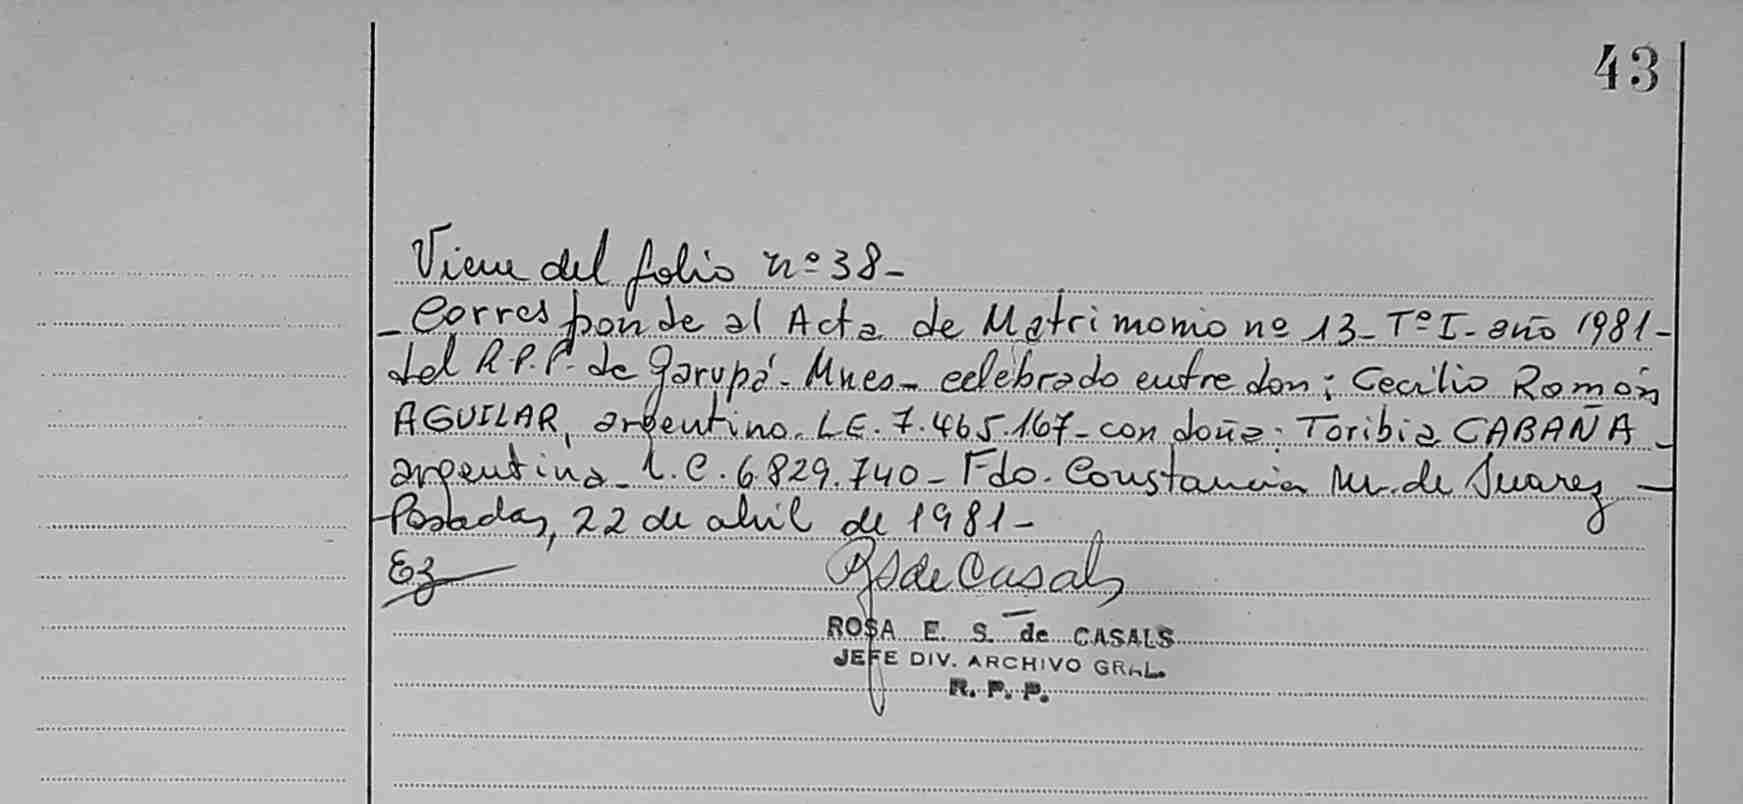 43
Viene del folio nº 38-
-Corresponde al Acta de Matrimonio nº 13- Tº I- año 1981-
del R.P.P. de Garupá- Mnes- celebrado entre don: Cecilio Román
AGUILAR, argentino. L.E. 7.465.167- con doña: Toribia CABAÑA-
argentina- L.C. 6.829.740- Fdo. Constancia M. de Suarez-
Posadas, 22 de abril de 1981-
Ez
RS de Casals
ROSA E. S. de CASALS
JEFE DIV. ARCHIVO GRAL.
R. P. P.